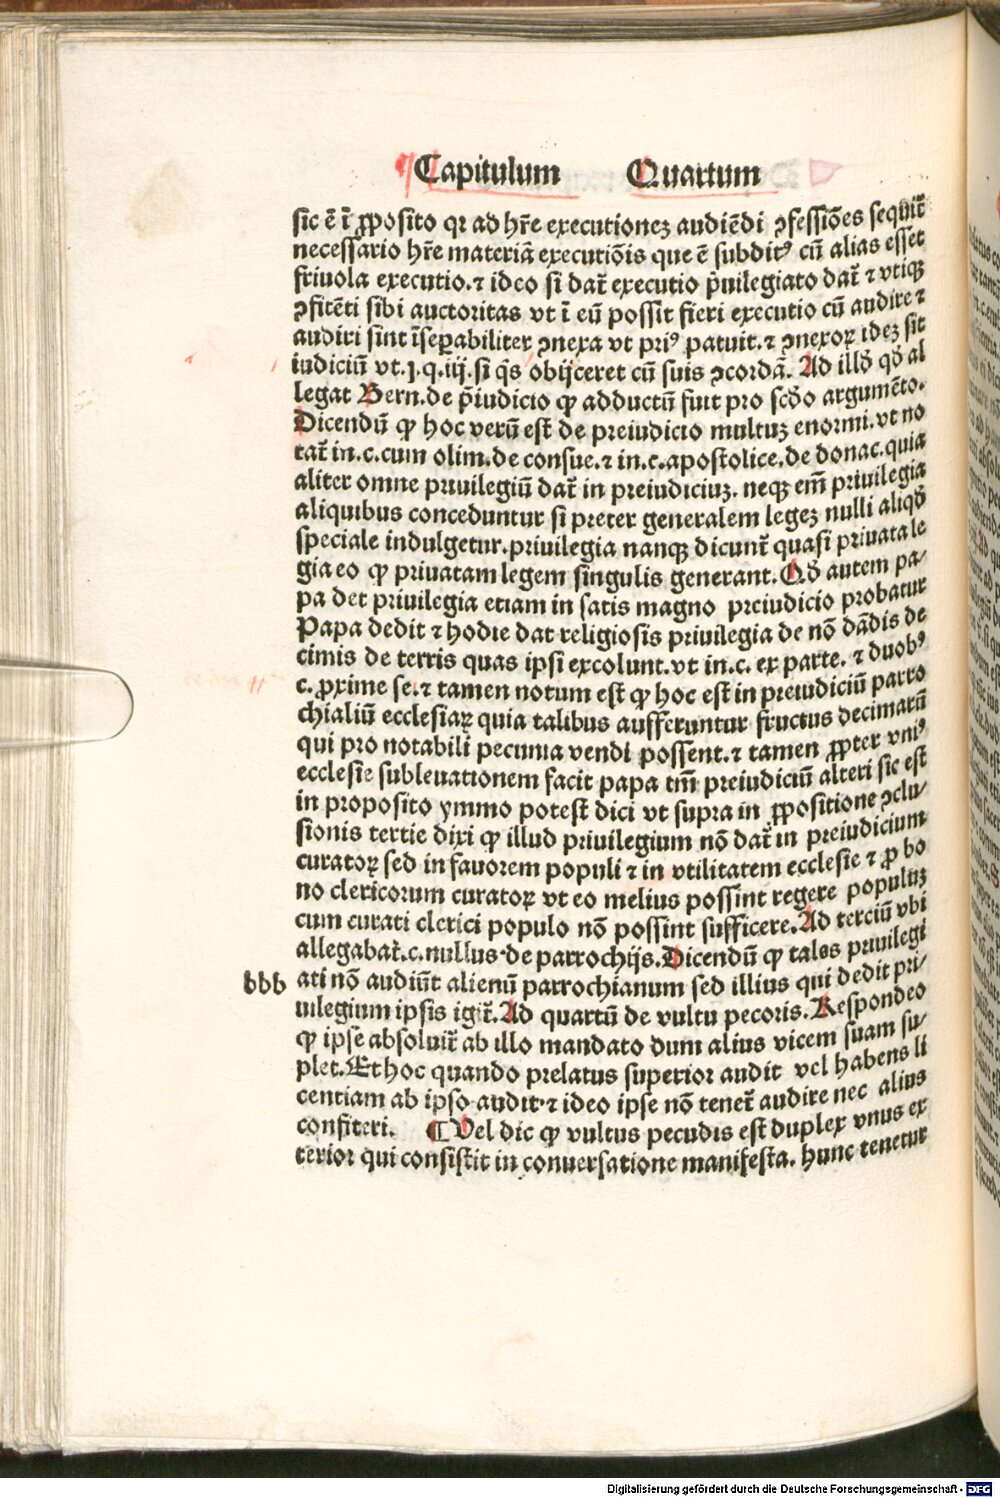 Capitulum Quartum
sic ē ī ꝓposito qꝛ ad hr̄e executionez audiēdi ꝯfessiōes sequit̄
necessario hr̄e materiā executiōis que ē subditꝰ cū alias esset
friuola executio.⁊ ideo si dat̄ executio p̄uilegiato dat̄ ⁊ vtiqꝫ
ꝯfitēti sibi auctoritas vt ī eū possit fieri executio cū audire ⁊
audiri sint īseꝑabiliter ꝯnexa vt priꝰ patuit.⁊ ꝯnexoꝝ idez sit
iudiciū vt.j.q.iij.si q̄s obijceret cū suis ꝯcordā. Ad illd̄ qd̄ al
legat Bern.de p̄iudicio ꝙ adductū fuit pro scd̄o argumēto.
Dicendū ꝙ hoc verū est de preiudicio multuz enormi.vt no
tat̄ in.c.cum olim.de consue.⁊ in.c.apostolice.de donac.quia
aliter omne priuilegiū dat̄ in preiudiciuz. neqꝫ em̄ priuilegia
aliquibus conceduntur si preter generalem legez nulli aliqd̄
speciale indulgetur.priuilegia nanqꝫ dicunt̄ quasi priuata le
gia eo ꝙ priuatam legem singulis generant. Qd̄ autem pa⸗
pa det priuilegia etiam in satis magno preiudicio probatur
Papa dedit ⁊ hodie dat religiosis priuilegia de nō dādis de
cimis de terris quas ipsi excolunt.vt in.c. ex parte. ⁊ duobꝰ
c. ꝓxime se.⁊ tamen notum est ꝙ hoc est in preiudiciū parro
chialiū ecclesiaꝝ quia talibus aufferuntur fructus decimarū
qui pro notabili pecunia vendi possent.⁊ tamen ꝓpter vniꝰ
ecclesie subleuationem facit papa tm̄ preiudiciū alteri sic est
in proposito ymmo potest dici vt supra in ꝓpositione ꝯclu⸗
sionis tertie dixi ꝙ illud priuilegium nō dat̄ in preiudicium
curatoꝝ sed in fauorem populi ⁊ in vtilitatem ecclesie ⁊ ꝓ bo
no clericorum curatoꝝ vt eo melius possint regere populuz
cum curati clerici populo nō possint sufficere. Ad terciū vbi
allegabat̄.c.nullus.de parrochijs. Dicendū ꝙ tales priuilegi
bbb ati nō audiūt alienū parrochianum sed illius qui dedit pri⸗
uilegium ipsis igit̄. Ad quartū de vultu pecoris. Respondeo
ꝙ ipse absoluit̄ ab illo mandato dum alius vicem suam su⸗
plet. Et hoc quando prelatus superior audit vel habens li
centiam ab ipso audit.⁊ ideo ipse nō tenet̄ audire nec alius
confiteri. ¶ Vel dic ꝙ vultus pecudis est duplex vnus ex
terior qui consistit in conuersatione manifesta. hunc tenetur
Digitalisierung gefördert durch die Deutsche Forschungsgemeinschaft - DFG